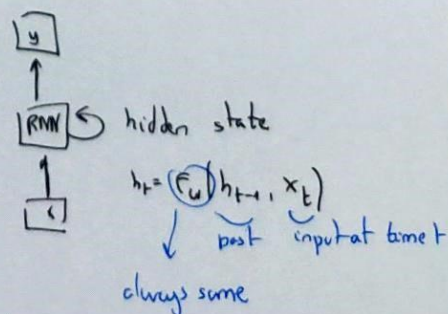 y
RNN
hidden state
h_t = F_W(h_{t-1}, x_t)
past
input at time t
always same